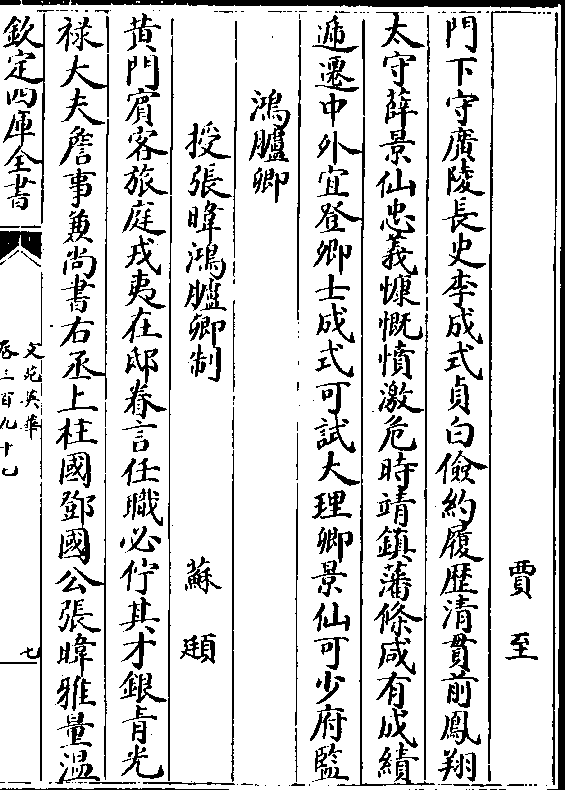 賈至
門下守廣陵長史李成式貞白儉約履歴清貫前鳳翔
太守薛景仙忠義慷慨憤激危時靖鎮藩條咸有成績
遞遷中外宜登卿士成式可試大理卿景仙可少府監
鴻臚卿
授張暐鴻臚卿制
蘇頲
黄門賓客旅庭戎夷在邸眷言任職必佇其才銀青光
禄大夫詹事兼尚書右丞上柱國鄧國公張暐雅量温
欽定四庫全書
文苑英華
卷三百九十七
七